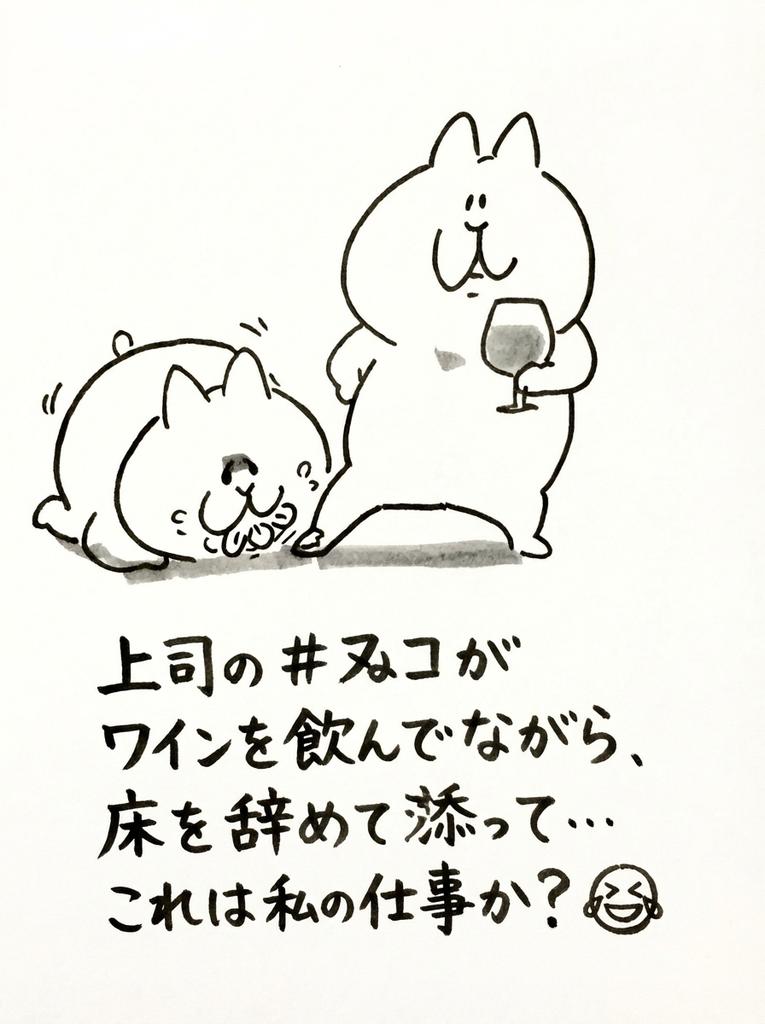 上司の#ヌコが
ワインを飲んでながら、
床を辞めて添って…
これは私の仕事か?😆